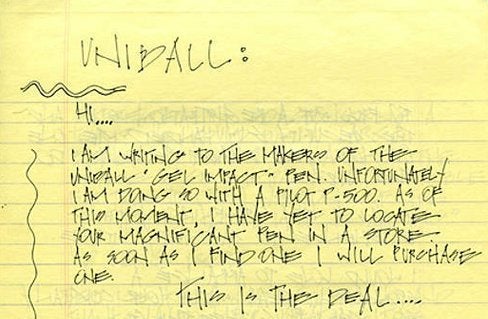 UNIBALL:
HI....
I AM WRITING TO THE MAKERS OF THE
UNIBALL "GEL IMPACT" PEN. UNFORTUNATELY
I AM DOING SO WITH A PILOT P-500. AS OF
THIS MOMENT, I HAVE YET TO LOCATE
YOUR MAGNIFICANT PEN IN A STORE.
AS SOON AS I FIND ONE I WILL PURCHASE
ONE.
THIS IS THE DEAL....